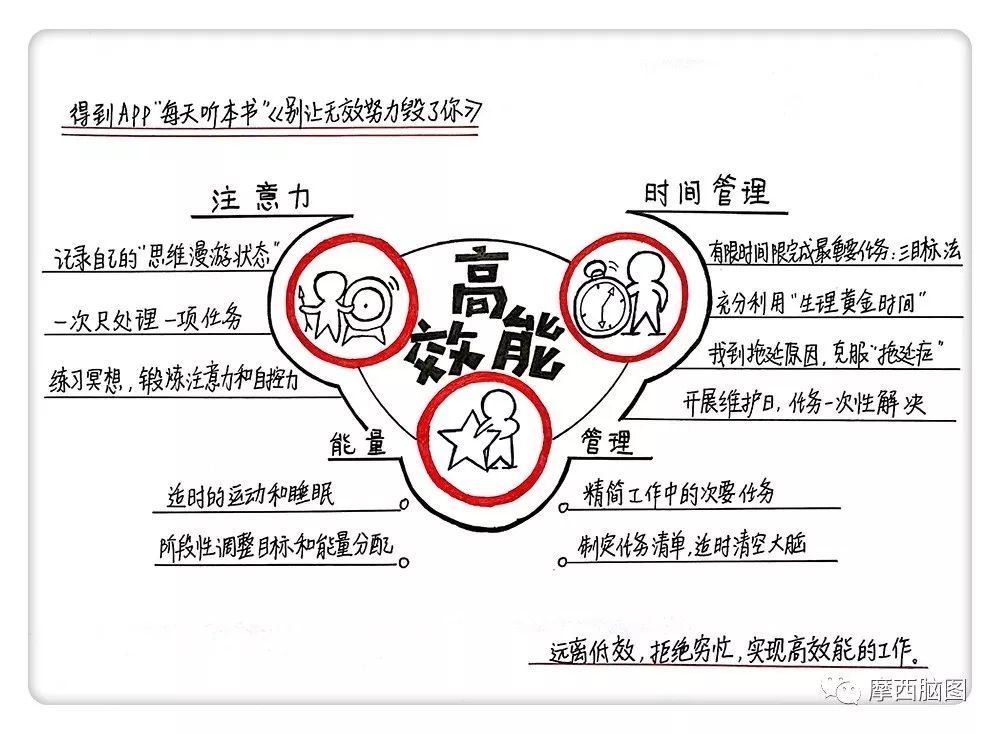 得到APP“每天听本书”《别让无效努力毁了你》
注意力
记录自己的“思维漫游状态”
一次只处理一项任务
练习冥想，锻炼注意力和自控力
高
效能
时间管理
有限时间限完成最重要任务：三目标法
充分利用“生理黄金时间”
找到拖延原因，克服“拖延症”
开展维护日，任务一次性解决
能量 管理
适时的运动和睡眠
阶段性调整目标和能量分配
精简工作中的次要任务
制定任务清单，适时清空大脑
远离低效，拒绝穷忙，实现高效能的工作。
摩西脑图